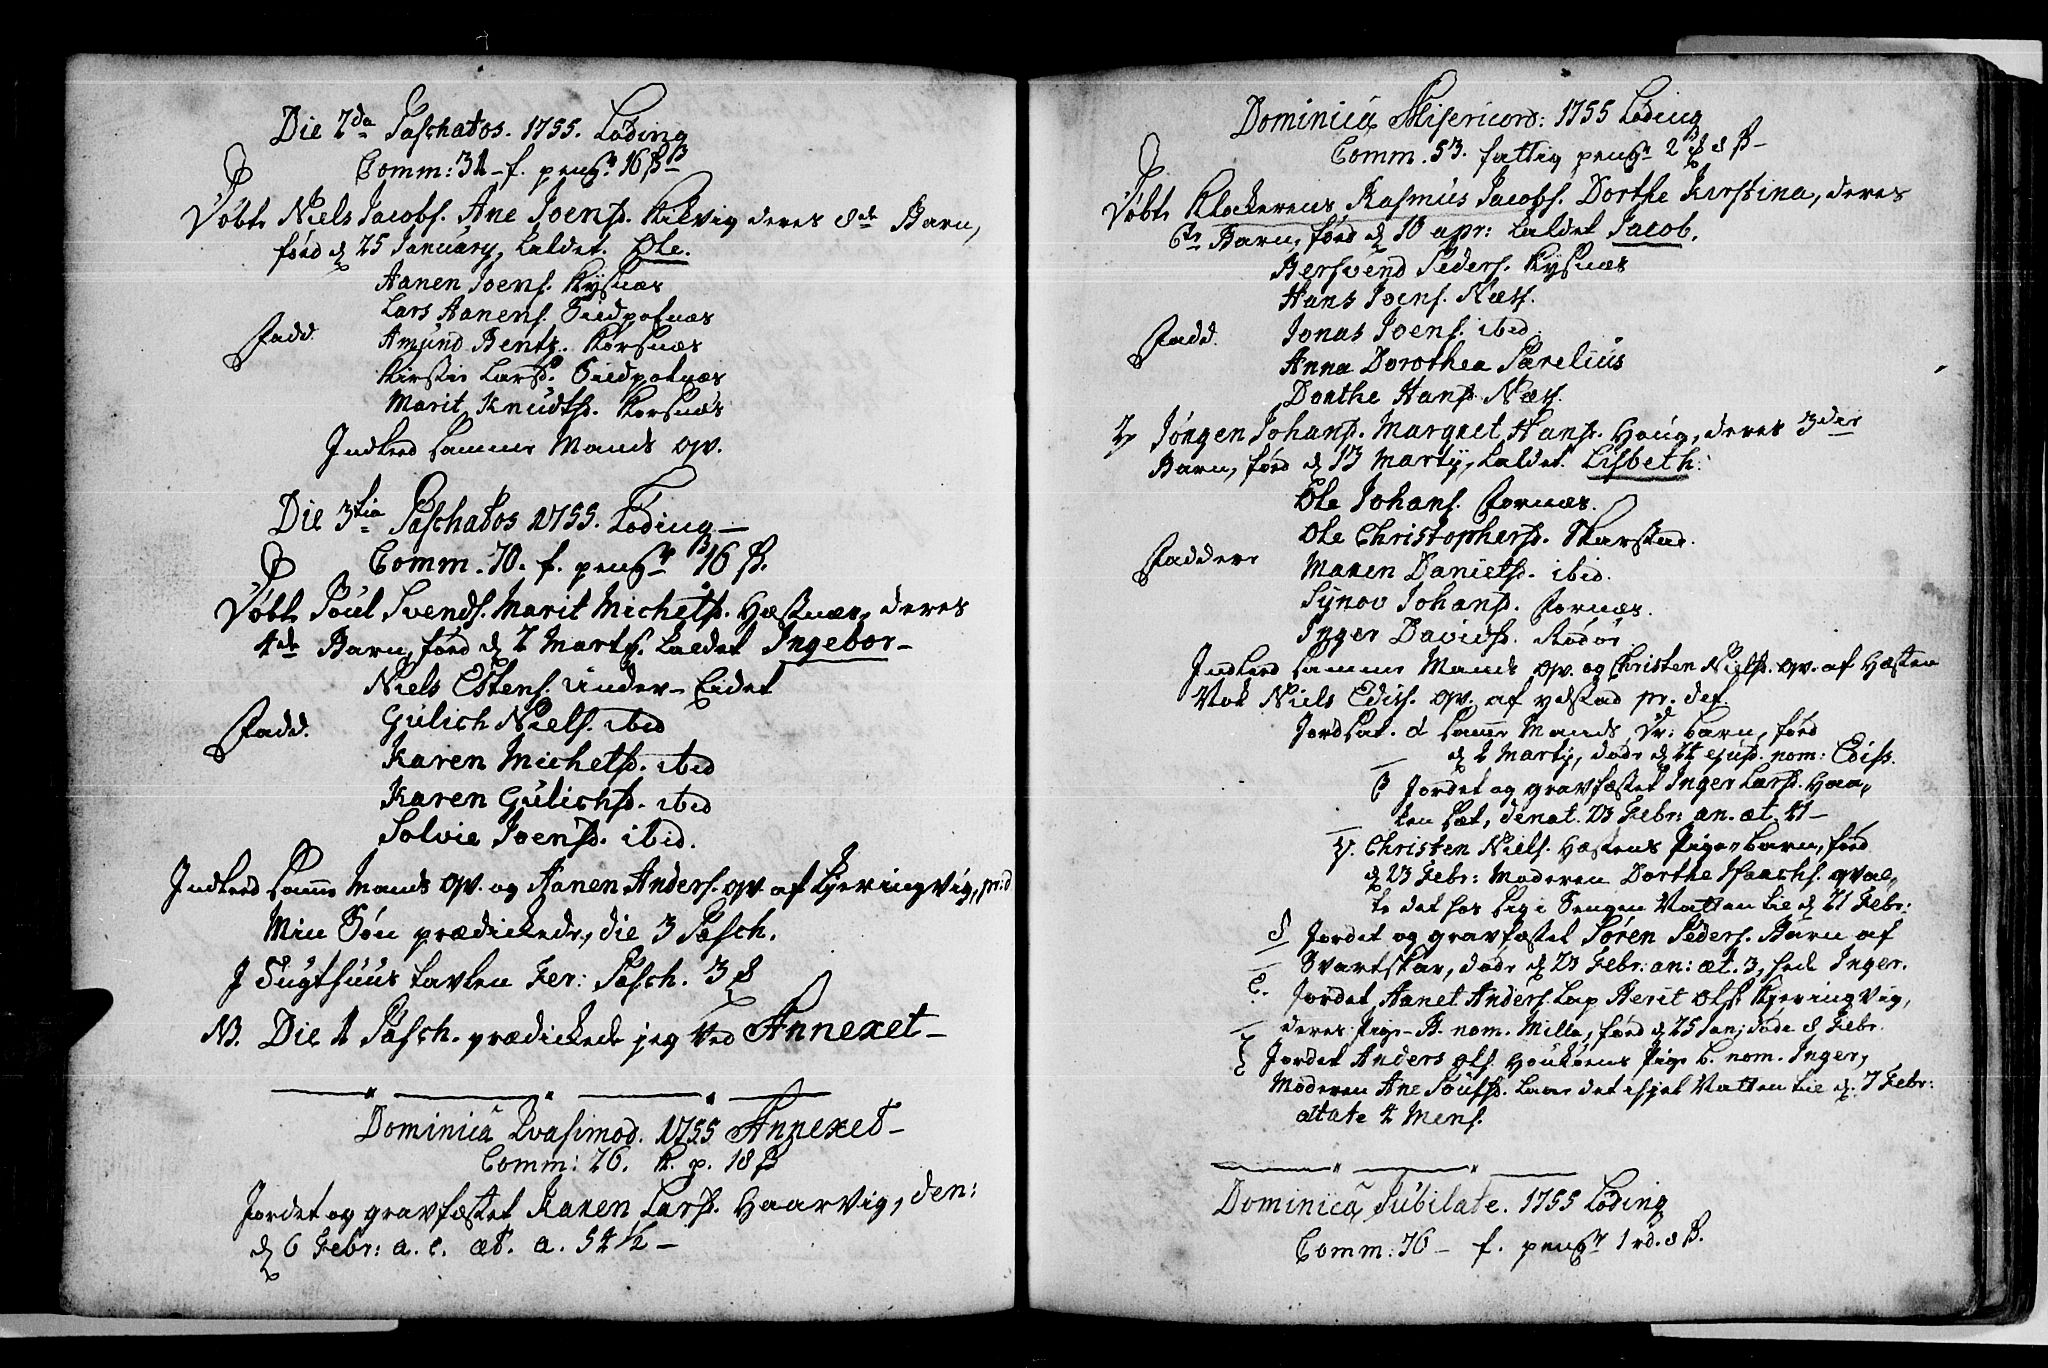 Die 2da Paschatos. 1755. Løding
Comm: 31 – f. peng. 16 ß
Døbt Niels Jacobs. Ane Joensd. Kilvig deres 8de Barn,
fød d 25 January, kaldet. Ole.
Aanen Joens. Kysnæs
Lars Aanens.
Fadd. Amund Bentz. Korsnæs
Kirstie Larsd.
Marit Knudtsd. Korsnæs
Indleed samme Mands qv.
Die 3tia Paschatos 1755. Løding –
Comm. 70. f. peng. 16 ß.
Døbt Poul Svends. Marit Michelsd. Hæstnæs, deres
4de Barn, fød d 2 Marts. kaldet Ingebor –
Niels Estens. under-Eidet
Fadd. Gulich Niels. ibid
Karen Michelsd. ibid
Karen Gulichsd. ibid
Solvie Joensd. ibid.
Indleed samme Mands qv. og Aanen Anders. qv. af Kjeringvig,
Min Søn prædickede, die 3 Pasch.
J Tugthuus tavlen Fer: Pasch. 3
N. Die 1 Pasch. prædickede jeg ved Annexet –
Dominica Qvasimod. 1755 Annexet –
Comm: 26. p. 18 ß
Jordet og gravfæstet Karen Larsd. Haarvig, den:
d 6 Febr: a. c. æt. a. 54 ½ –
Dominica Misericord: 1755 Løding
Comm. 53. fattig peng 2 8 ß –
Døbt Klockerens Rasmus Jacobs. Dorthe Kirstina, deres
6te Barn, fød d 10 apr: kaldet Jacob.
Bersvend Peders. Kysnæs
Hans Joens. Næss.
Fadd. Jonas Joens. ibid.
Anna Dorothea Parelius
Dorthe Hansd. Næss.
2) Jørgen Johans. Margret Hansd. Houg, deres 3die
Barn, fød d 13 Martij, kaldet. Lisbeth:
Ole Johans. Fornæs.
Ole Christophers. Skarstad.
Faddere Maren Danielsd. ibid.
Synov Johansd. Fornæs.
Inger Davidsd. Rodøe
Indleed samme Mands qv. og Christen Niels. qv. af Hæsten
Nok Niels Ediss. qv. af ydstad pr. def.
Jordsat. α samme Mands Dr: barn, fød
d 2 Martij, døde d ejusd. nom: Ediss.
β Jordet og gravfæstet Inger Larsd. Haa-
ken sæt, denat. 23 Febr: an. æt. 41 –
γ. Christen Niels. Hæstens Pige-barn, fød
d 23 Febr: Moderen Dorthe Isaachs. qval-
te det hos sig i Sengen Natten til d 21 Febr:
δ Jordet og gravfæstet Søren Peders. Barn af
Svartskar, døde d 23 Febr: an: æt. 3, hede Inger.
ε. Jordet Aanet Anders. Lap Berit Olsd Kjeringvig,
deres Pige-B. nom. Milla, fød d 25 Jan; døde 8 Febr.
ζ Jordet Anders Ols. Houkøens Pige b. nom. Inger,
Moderen Ane Poulsd. laae det ihjel Natten til d. 7 Febr:
ætate 4 Mens.
Dominica Jubilate. 1755 Løding
Comm: 76 – f. peng 1 rd. 8 ß.